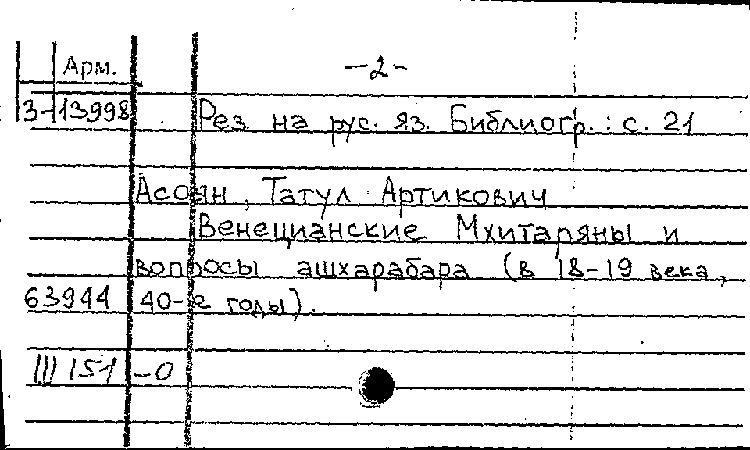 Арм. -2-
3-13998 Рез на рус. яз. Библиогр.: с. 21
Асоян, Татул Артикович
Венецианские Мхитаряны и
вопросы ашхарабара (в 18-19 века,
63944 40-е годы).
III 151-0